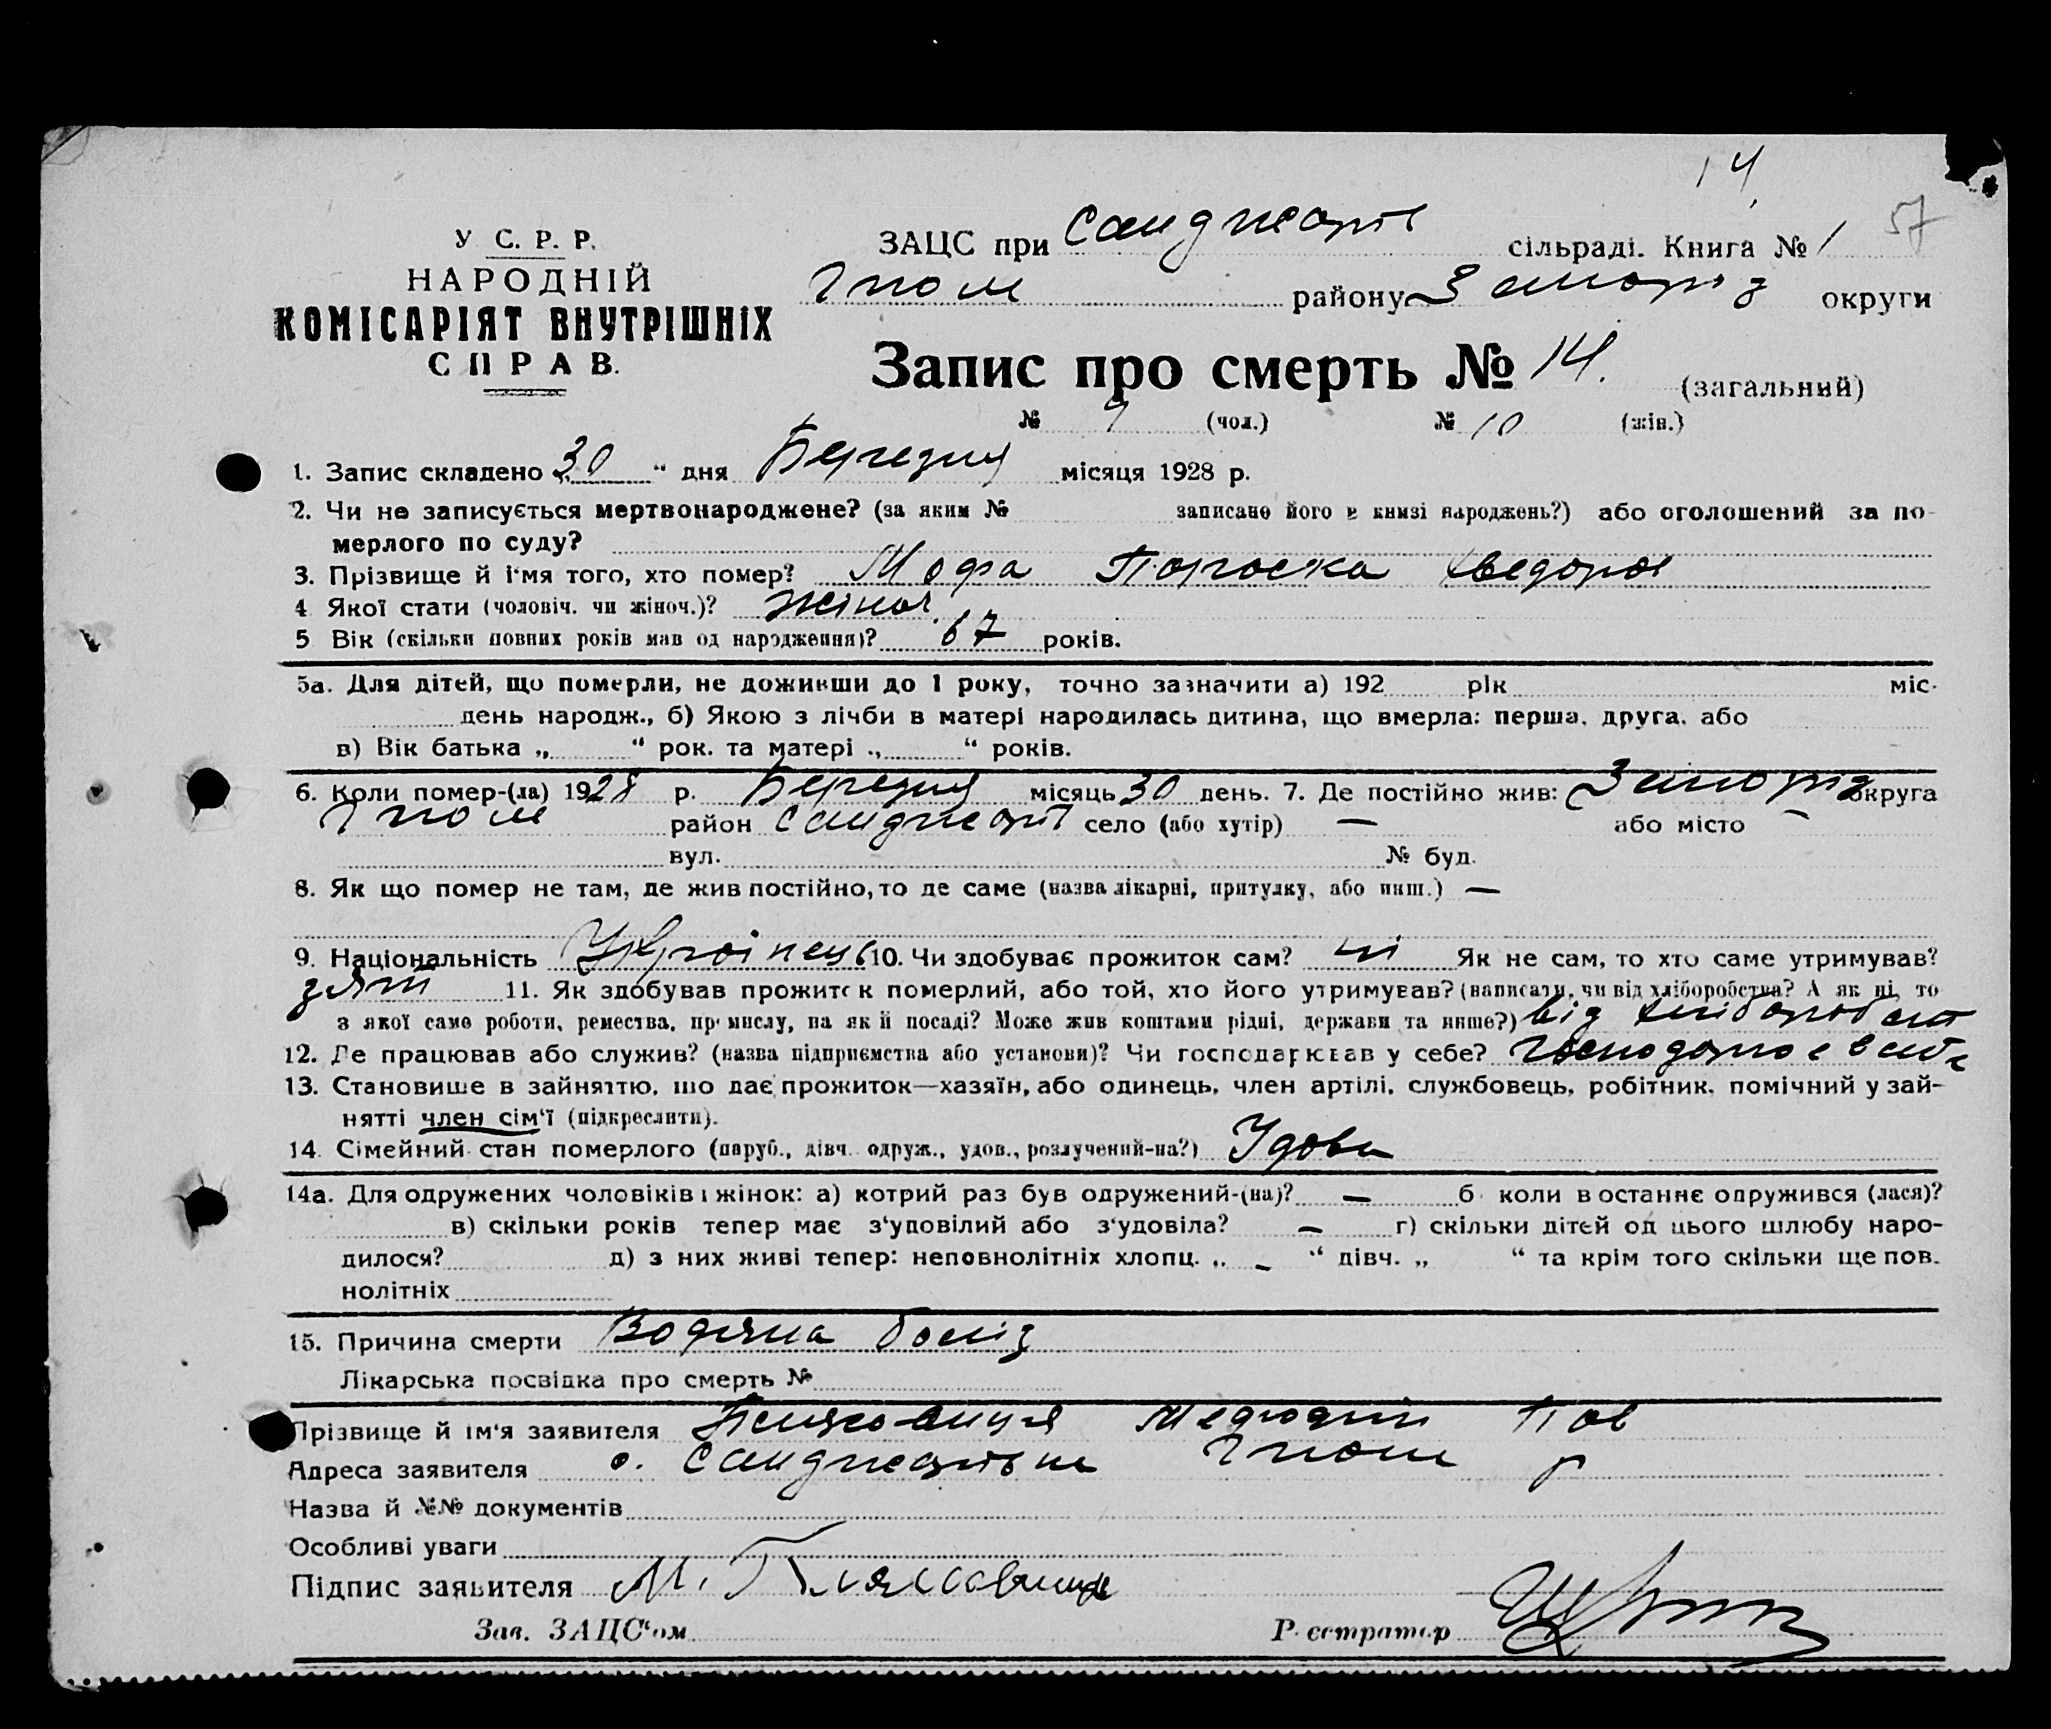 14
57
У С. Р. Р.
НАРОДНІЙ
КОМІСАРІЯТ ВНУТРІШНІХ
СПРАВ.
ЗАЦС при сільраді. Книга № 1
району Запоріз округи
Запис про смерть № 14. (загальний)
№ (чол.) № 10 (жін.)
1. Запис складено „30“ дня Березня місяця 1928 р.
2. Чи не записується мертвонароджене? (за яким № записано його в книзі народжень?) або оголошений за по-
мерлого по суду?
3. Прізвище й ім'я того, хто помер? Параска
4 Якої стати (чоловіч. чи жіноч.)? жіноч
5 Вік (скільки повних років мав од народження)? 67 років.
5а. Для дітей, що померли, не доживши до 1 року, точно зазначити а) 192 рік міс.
день народж., б) Якою з лічби в матері народилась дитина, що вмерла: перша, друга, або
в) Вік батька „ “ рок. та матері „ “ років.
6. Коли помер-(ла) 1928 р. Березня місяць 30 день. 7. Де постійно жив: Запоріз округа
район село (або хутір) — або місто —
вул. № буд.
8. Як що помер не там, де жив постійно, то де саме (назва лікарні, притулку, або инш.) —
9. Національність Українець 10. Чи здобуває прожиток сам? ні Як не сам, то хто саме утримував?
зят 11. Як здобував прожиток померлий, або той, хто його утримував? (написати, чи від хліборобства? А як ні, то
з якої саме роботи, ремества, промислу, на якій посаді? Може жив коштами рідні, держави та инше?) від
12. Де працював або служив? (назва підприємства або установи)? Чи господарював у себе?
13. Становище в зайняттю, що дає прожиток—хазяїн, або одинець, член артілі, службовець, робітник, помічний у зай-
нятті член сім'ї (підкреслити).
14. Сімейний стан померлого (паруб., дівч. одруж., удов., розлучений-на?) Удова
14а. Для одружених чоловіків і жінок: а) котрий раз був одружений-(на)? — б коли востаннє одружився (лася)?
в) скільки років тепер має з'удовілий або з'удовіла? — г) скільки дітей од цього шлюбу наро-
дилося? д) з них живі тепер: неповнолітніх хлопц. „ – “ дівч. „ “ та крім того скільки ще пов.
нолітніх
15. Причина смерти Водяна
Лікарська посвідка про смерть №
Прізвище й ім'я заявителя
Адреса заявителя с. р
Назва й №№ документів
Особливі уваги
Підпис заявителя М.
Зав. ЗАЦС'ом Реєстратор